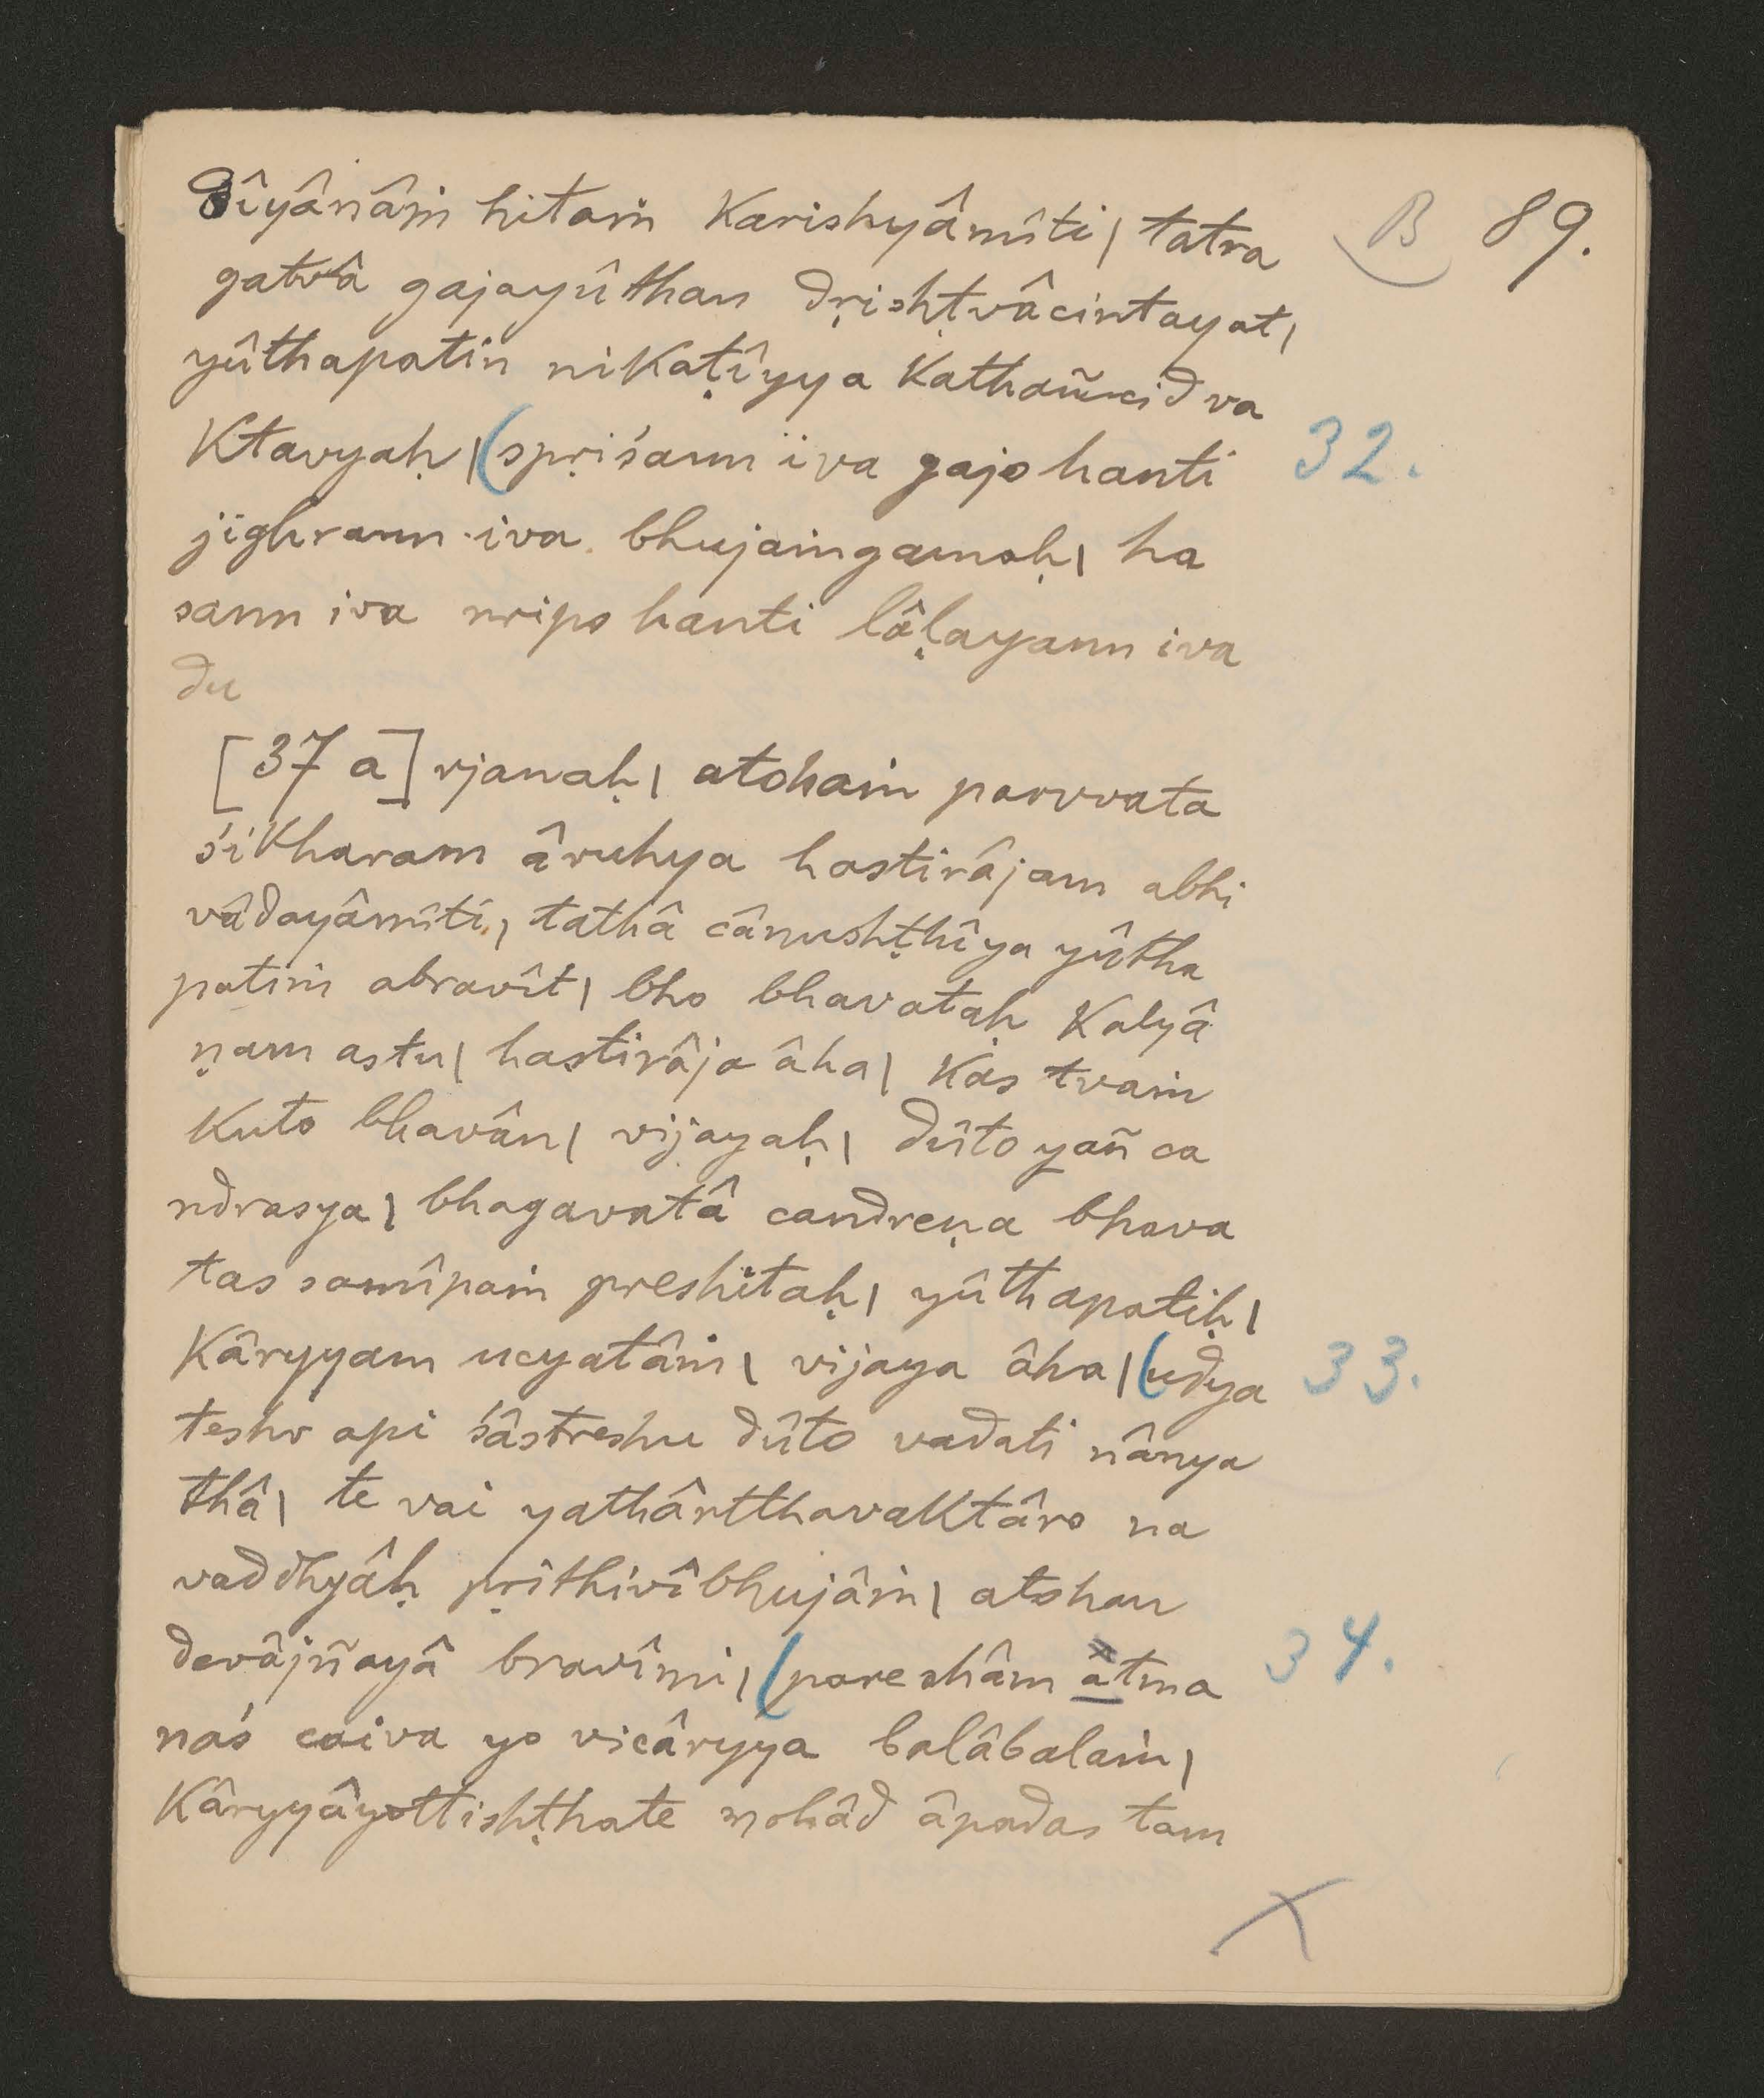 B 89.
dîyânâṁ hitaṁ karishyâmîti | tatra
gatvâ gajayûthan dṛishṭvâcintayat |
yûthapatin nikaṭîyya kathañcid va
ktavyaḥ | (spṛiśann iva gajo hanti 32.
jighrann iva bhujaṁgamaḥ | ha
sann iva nripo hanti lâḷayann iva
du
[37 a] rjanaḥ | atohaṁ parvvata
śikharam âruhya hastirâjam abhi
vâdayâmîti, | tathâ cânushṭhîya yûtha
patim abravît | bho bhavataḥ kalyâ
ṇam astu | hastirâja âha | kas tvaṁ
kuto bhavân | vijayaḥ | dûto yañ ca
ndrasya | bhagavatâ candreṇa bhava
tas samîpaṁ preshitaḥ | yûthapatiḥ |
kâryyam ucyatâṁ | vijaya âha | (udya 33.
teshv api śâstreshu dûto vadati nânya
thâ | te vai yathârtthavaktâro na
vaddhyâḥ pṛithivîbhujâṁ | atohan
devâjñayâ bravîmi | (pareshâm âtma 34.
naś caiva yo vicâryya balâbalaṁ |
kâryyâyottishṭhate mohâd âpadas tam